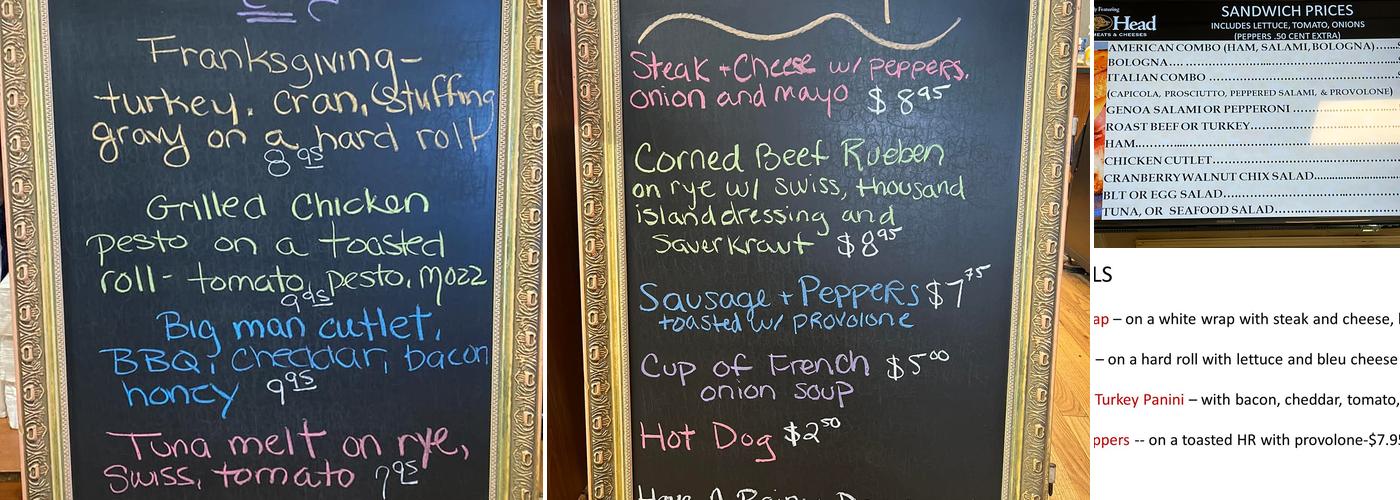 Franksgiving-
turkey. cran, stuffing
gravy on a hard roll
8 95
Grilled Chicken
pesto on a toasted
roll- tomato, pesto, mozz
9 95
Big man cutlet,
BBQ, cheddar, bacon
honey 9 95
Tuna melt on rye,
Swiss, tomato 7 95
Steak + Cheese w/ peppers,
onion and mayo $8 95
Corned Beef Rueben
on rye w/ swiss, thousand
island dressing and
Sauerkraut $8 95
Sausage + Peppers $7 75
toasted w/ provolone
Cup of French $5 00
onion soup
Hot Dog $2 50
Have A Rainy D
ly Featuring
Head
MEATS & CHEESES
SANDWICH PRICES
INCLUDES LETTUCE, TOMATO, ONIONS
(PEPPERS .50 CENT EXTRA)
AMERICAN COMBO (HAM, SALAMI, BOLOGNA)
BOLOGNA
ITALIAN COMBO
(CAPICOLA, PROSCIUTTO, PEPPERED SALAMI, & PROVOLONE)
GENOA SALAMI OR PEPPERONI
ROAST BEEF OR TURKEY
HAM
CHICKEN CUTLET
CRANBERRY WALNUT CHIX SALAD
BLT OR EGG SALAD
TUNA, OR SEAFOOD SALAD
LS
ap – on a white wrap with steak and cheese,
– on a hard roll with lettuce and bleu cheese
Turkey Panini – with bacon, cheddar, tomato,
ppers -- on a toasted HR with provolone-$7.9